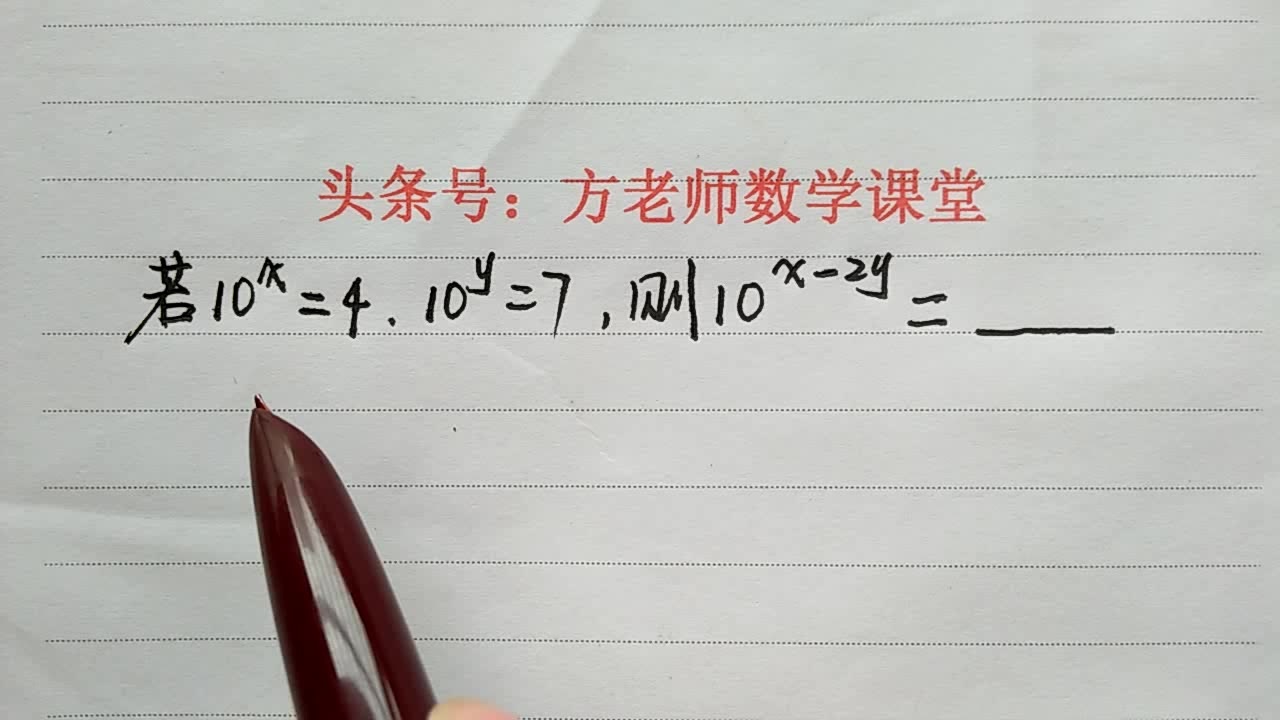 头条号：方老师数学课堂
若10^x=4.10^y=7,则10^{x-2y}=____